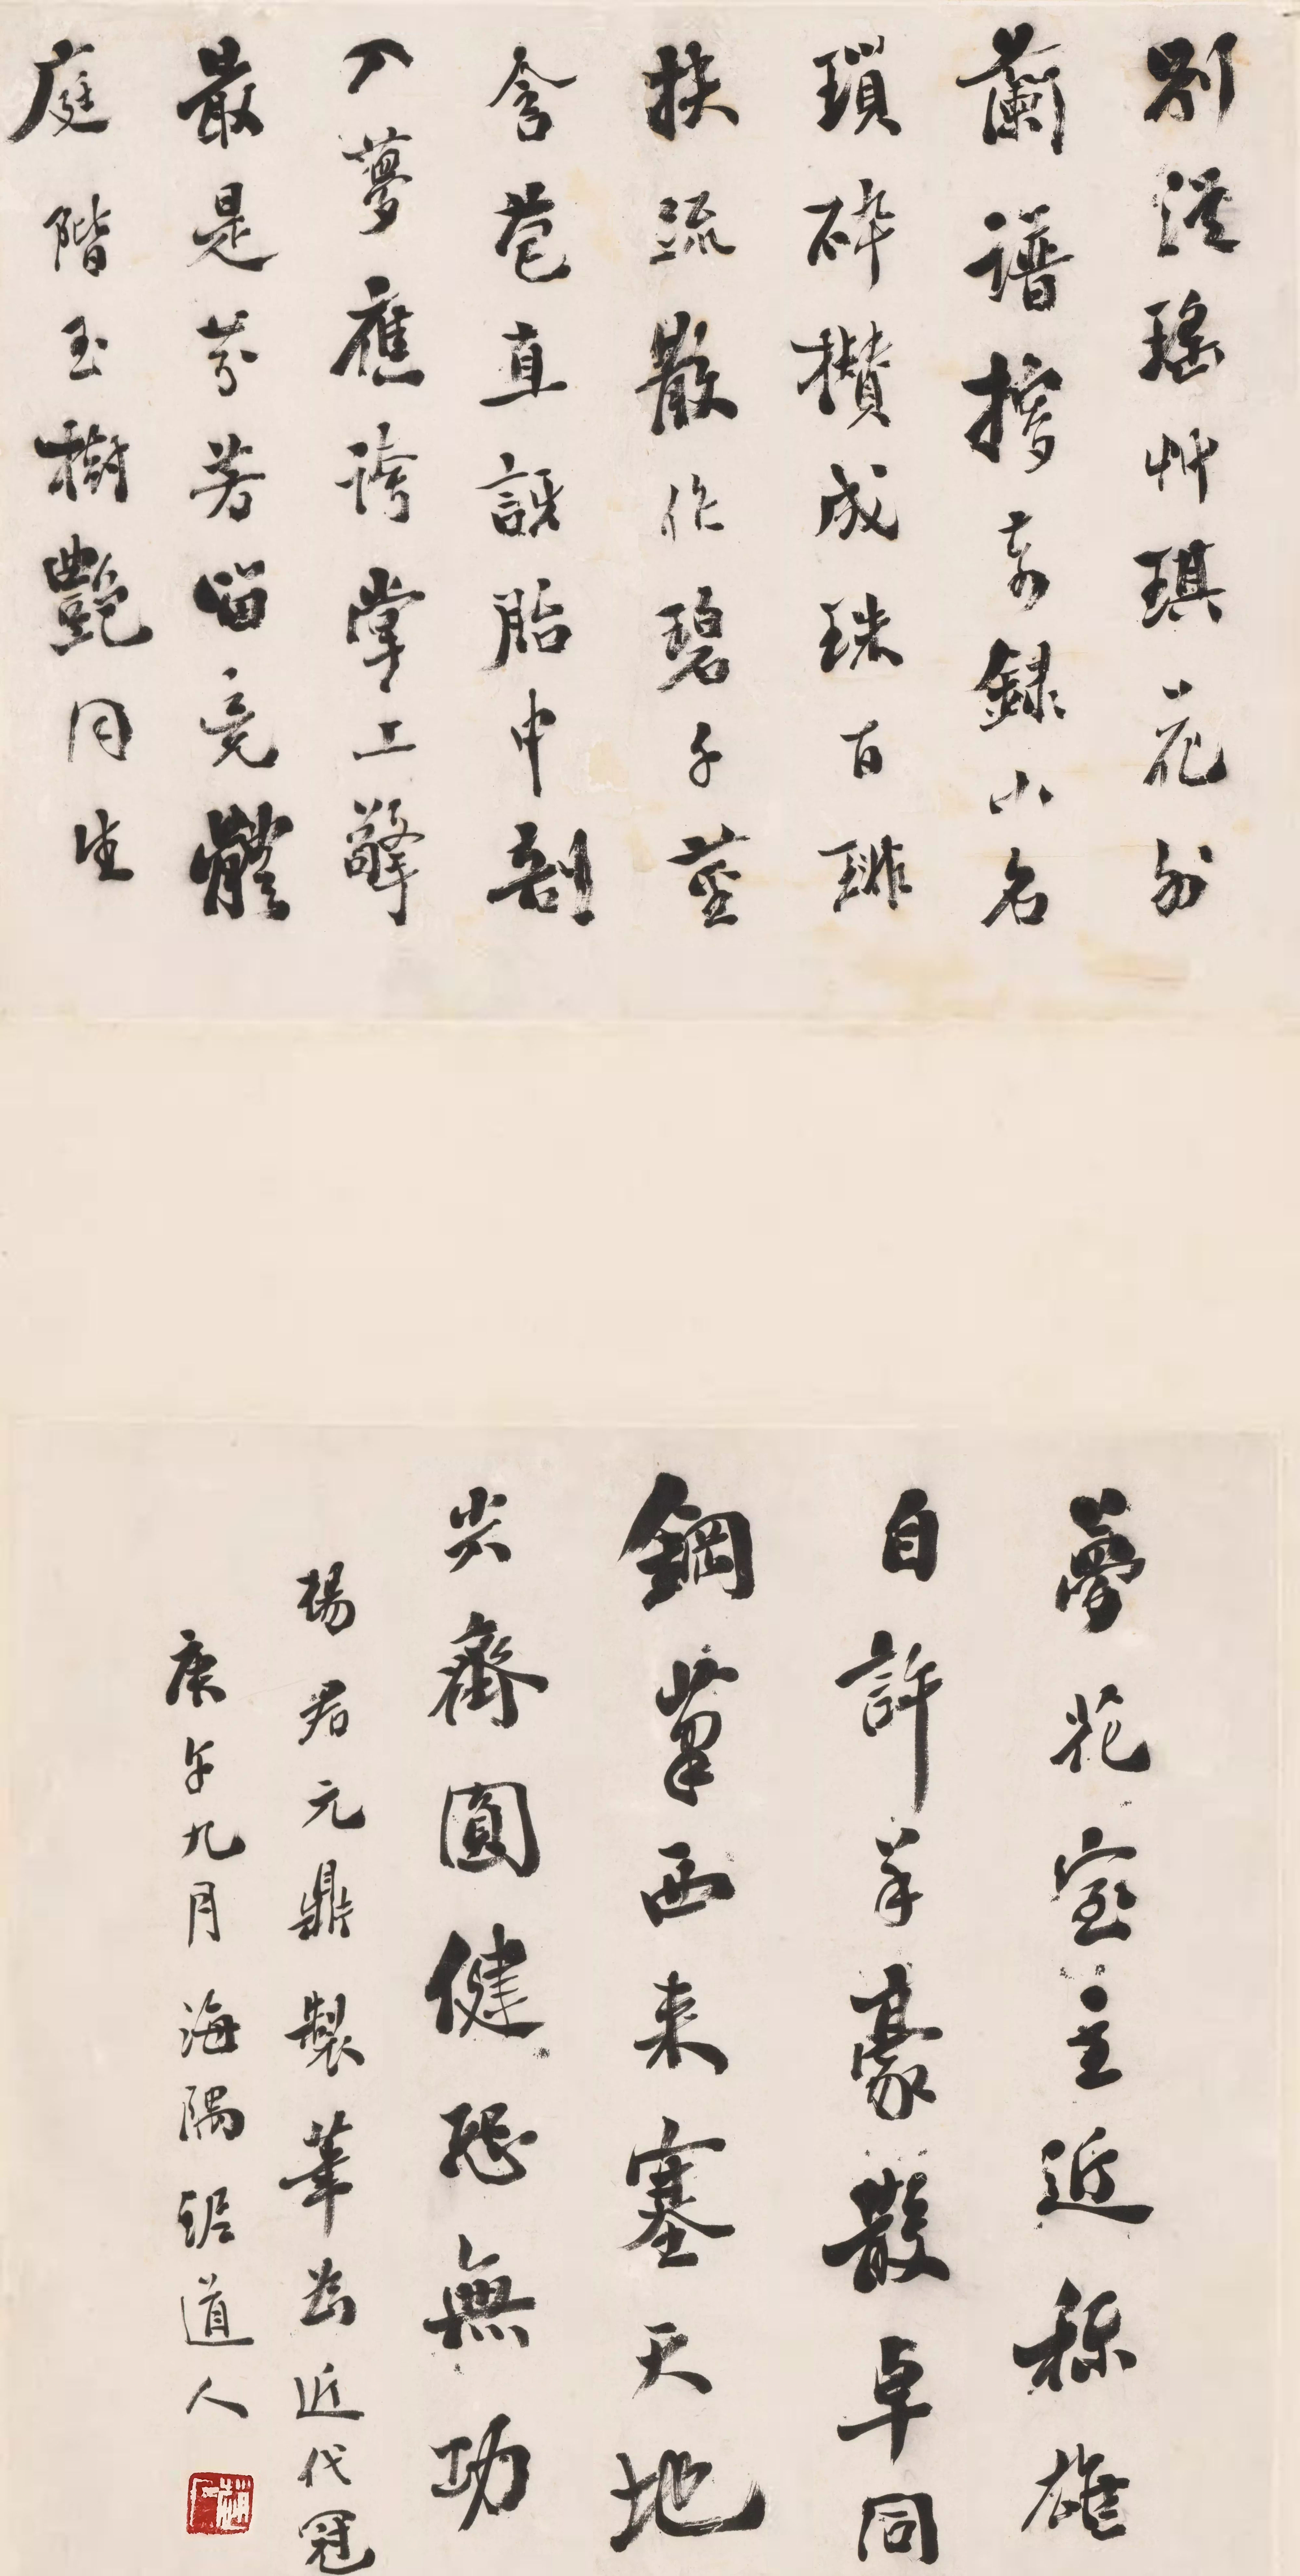 別從瑤艸琪花外
蘭譜搜奇錄小名
瑣碎攢成珠百琲
扶疏散作碧千莖
含苞直訝胎中剖
入夢應誇掌上擎
最是芬芳留竟體
庭階玉樹豔同生
夢花室主近稱雄
自許羊豪散卓同
鋼筆西来塞天地
尖齊圓健恐無功
楊君元鼎製筆為近代冠
庚午九月海隅琚道人